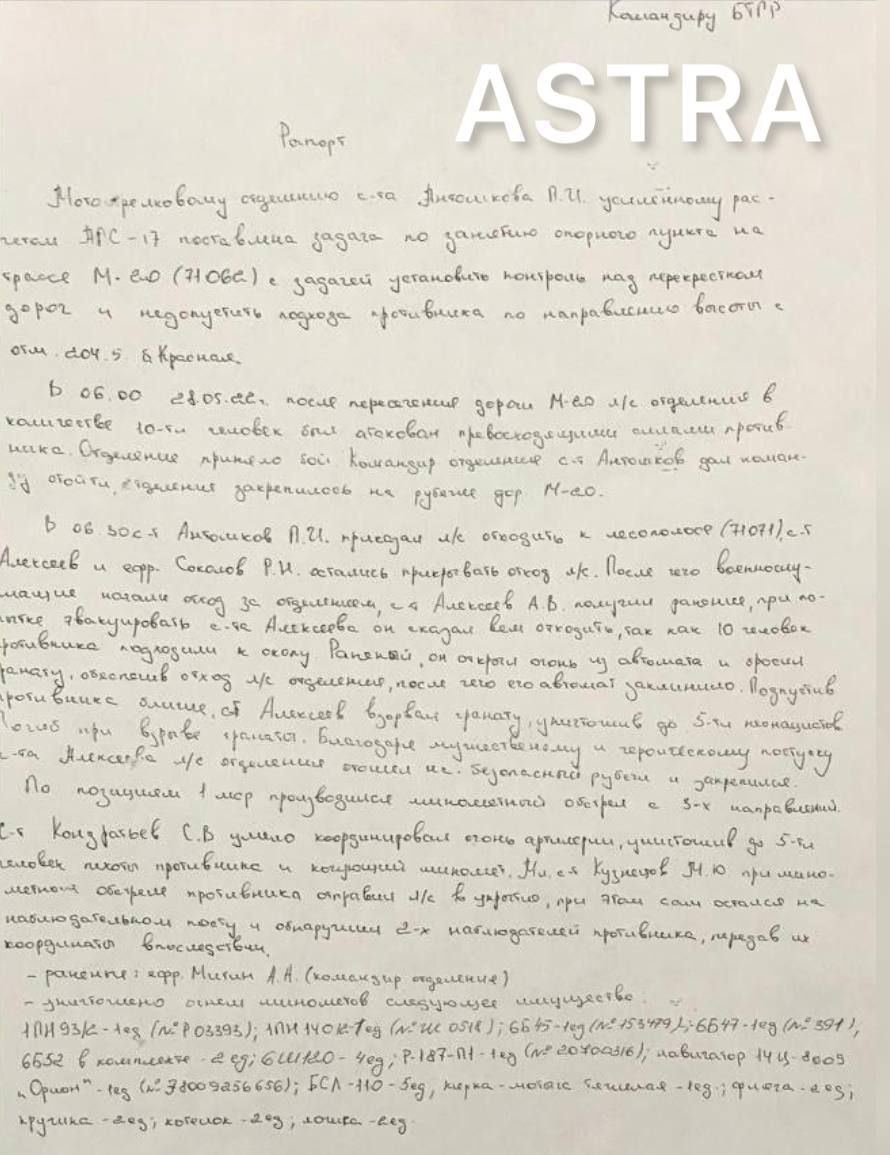 Командиру БТГР
ASTRA
Рапорт
Мотострелковому отделению с-та Антошкова П.И. усиленному рас-
четом АГС-17 поставлена задача по занятию опорного пункта на
трассе М-20 (7106а) с задачей установить контроль над перекрестком
дорог и недопустить подхода противника по направлению высоты с
отм. 204.5 Красная
В 06.00 28.05.22г. после пересечения дороги М-20 л/с отделения в
количестве 10-ти человек был атакован превосходящими силами против-
ника. Отделение приняло бой. Командир отделения с-т Антошков дал коман-
ду отойти, отделение закрепилось на рубеже дор. М-20.
В 06.30 с-т Антошков П.И. приказал л/с отходить к лесополосе (71071), с-т
Алексеев и ефр. Соколов Р.Н. остались прикрывать отход л/с. После чего военнослу-
жащие начали отход за отделением, с-т Алексеев А.В. получил ранение, при по-
пытке эвакуировать с-та Алексеева он сказал всем отходить, так как 10 человек
противника подходили к окопу. Раненый, он открыл огонь из автомата и бросил
гранату, обеспечив отход л/с отделения, после чего его автомат заклинило. Подпустив
противника ближе, с-т Алексеев взорвал гранату, уничтожив до 5-ти неонацистов.
Погиб при взрыве гранаты. Благодаря мужественному и героическому поступку
с-та Алексеева л/с отделения отошел на безопасный рубеж и закрепился.
По позициям 1 мср производился минометный обстрел с 3-х направлений.
С-т Кондратьев С.В умело координировал огонь артилерии, уничтожив до 5-ти
человек пехоты противника и кочующий миномет. Мл. с-т Кузнецов М.Ю. при мино-
метном обстреле противника отправил л/с в укрытие, при этом сам остался на
наблюдательном посту и обнаружил 2-х наблюдателей противника, передав их
координаты впоследствии.
- раненые: ефр. Митин А.А. (командир отделения)
- уничтожено огнем минометов следующее имущество:
1ПН93/2 - 1ед (№Р03393); 1ПН140К-1ед (№Ш 0518); 6Б45-1ед (№153479); 6Б47-1ед (№391),
6Б52 в комплекте - 2 ед; 6Ш120 - 4ед; Р-187-П1 - 1ед (№20700316); навигатор 14Ц-8009
„Орион" - 1ед (№78009256656); БСЛ-110 - 5ед, кирка-мотыга тяжелая - 1ед; фляга - 2ед;
кружка - 2ед; котелок - 2ед; ложка - 2ед.